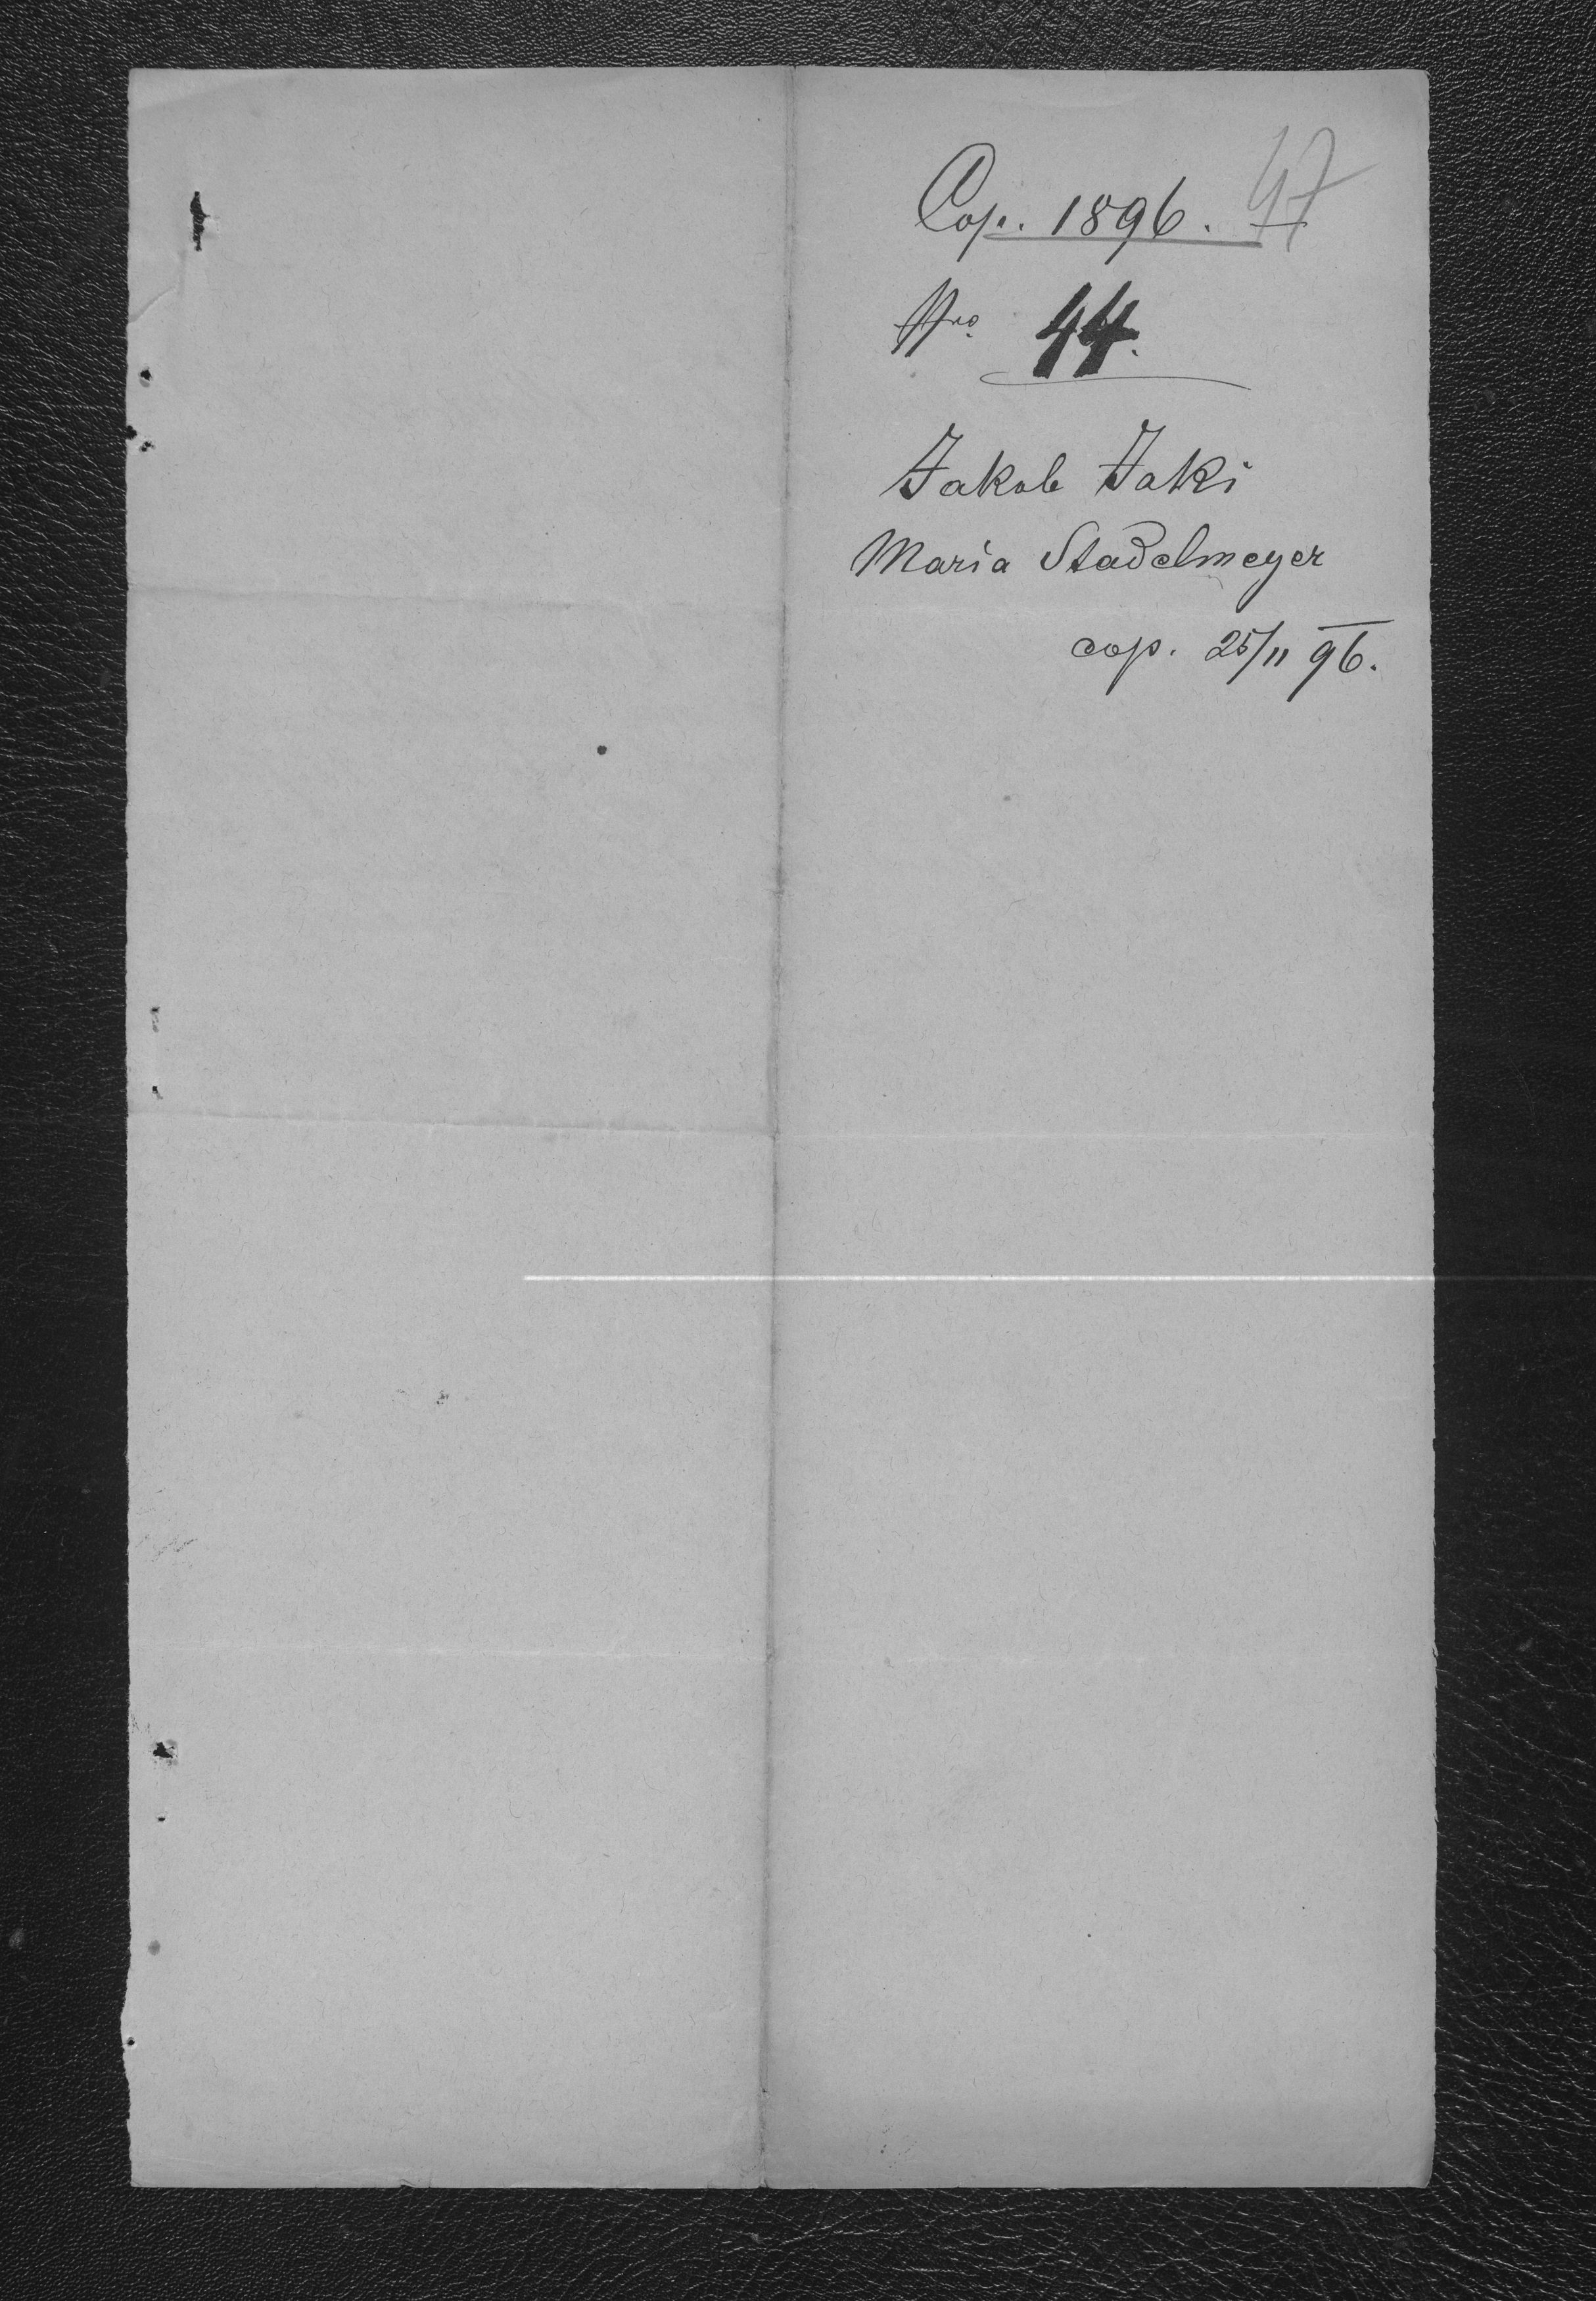 Cop. 1896. 47
Nro. 44.
Jakob Jaki
Maria Stadelmeyer
cop. 25/11 96.